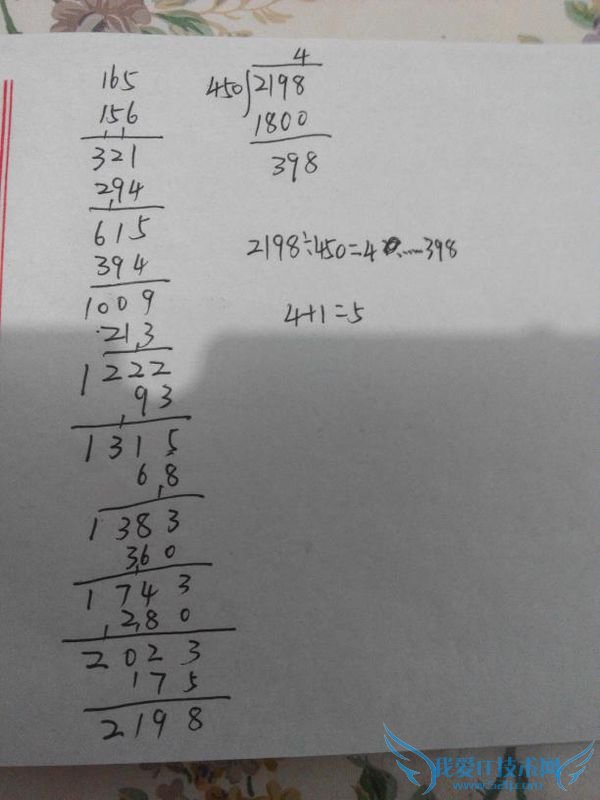 165
156
321
294
615
394
1009
213
1222
93
1315
68
1383
360
1743
280
2023
175
2198
4
450 2198
1800
398
2198÷450=4……398
4+1=5
我爱IT技术网